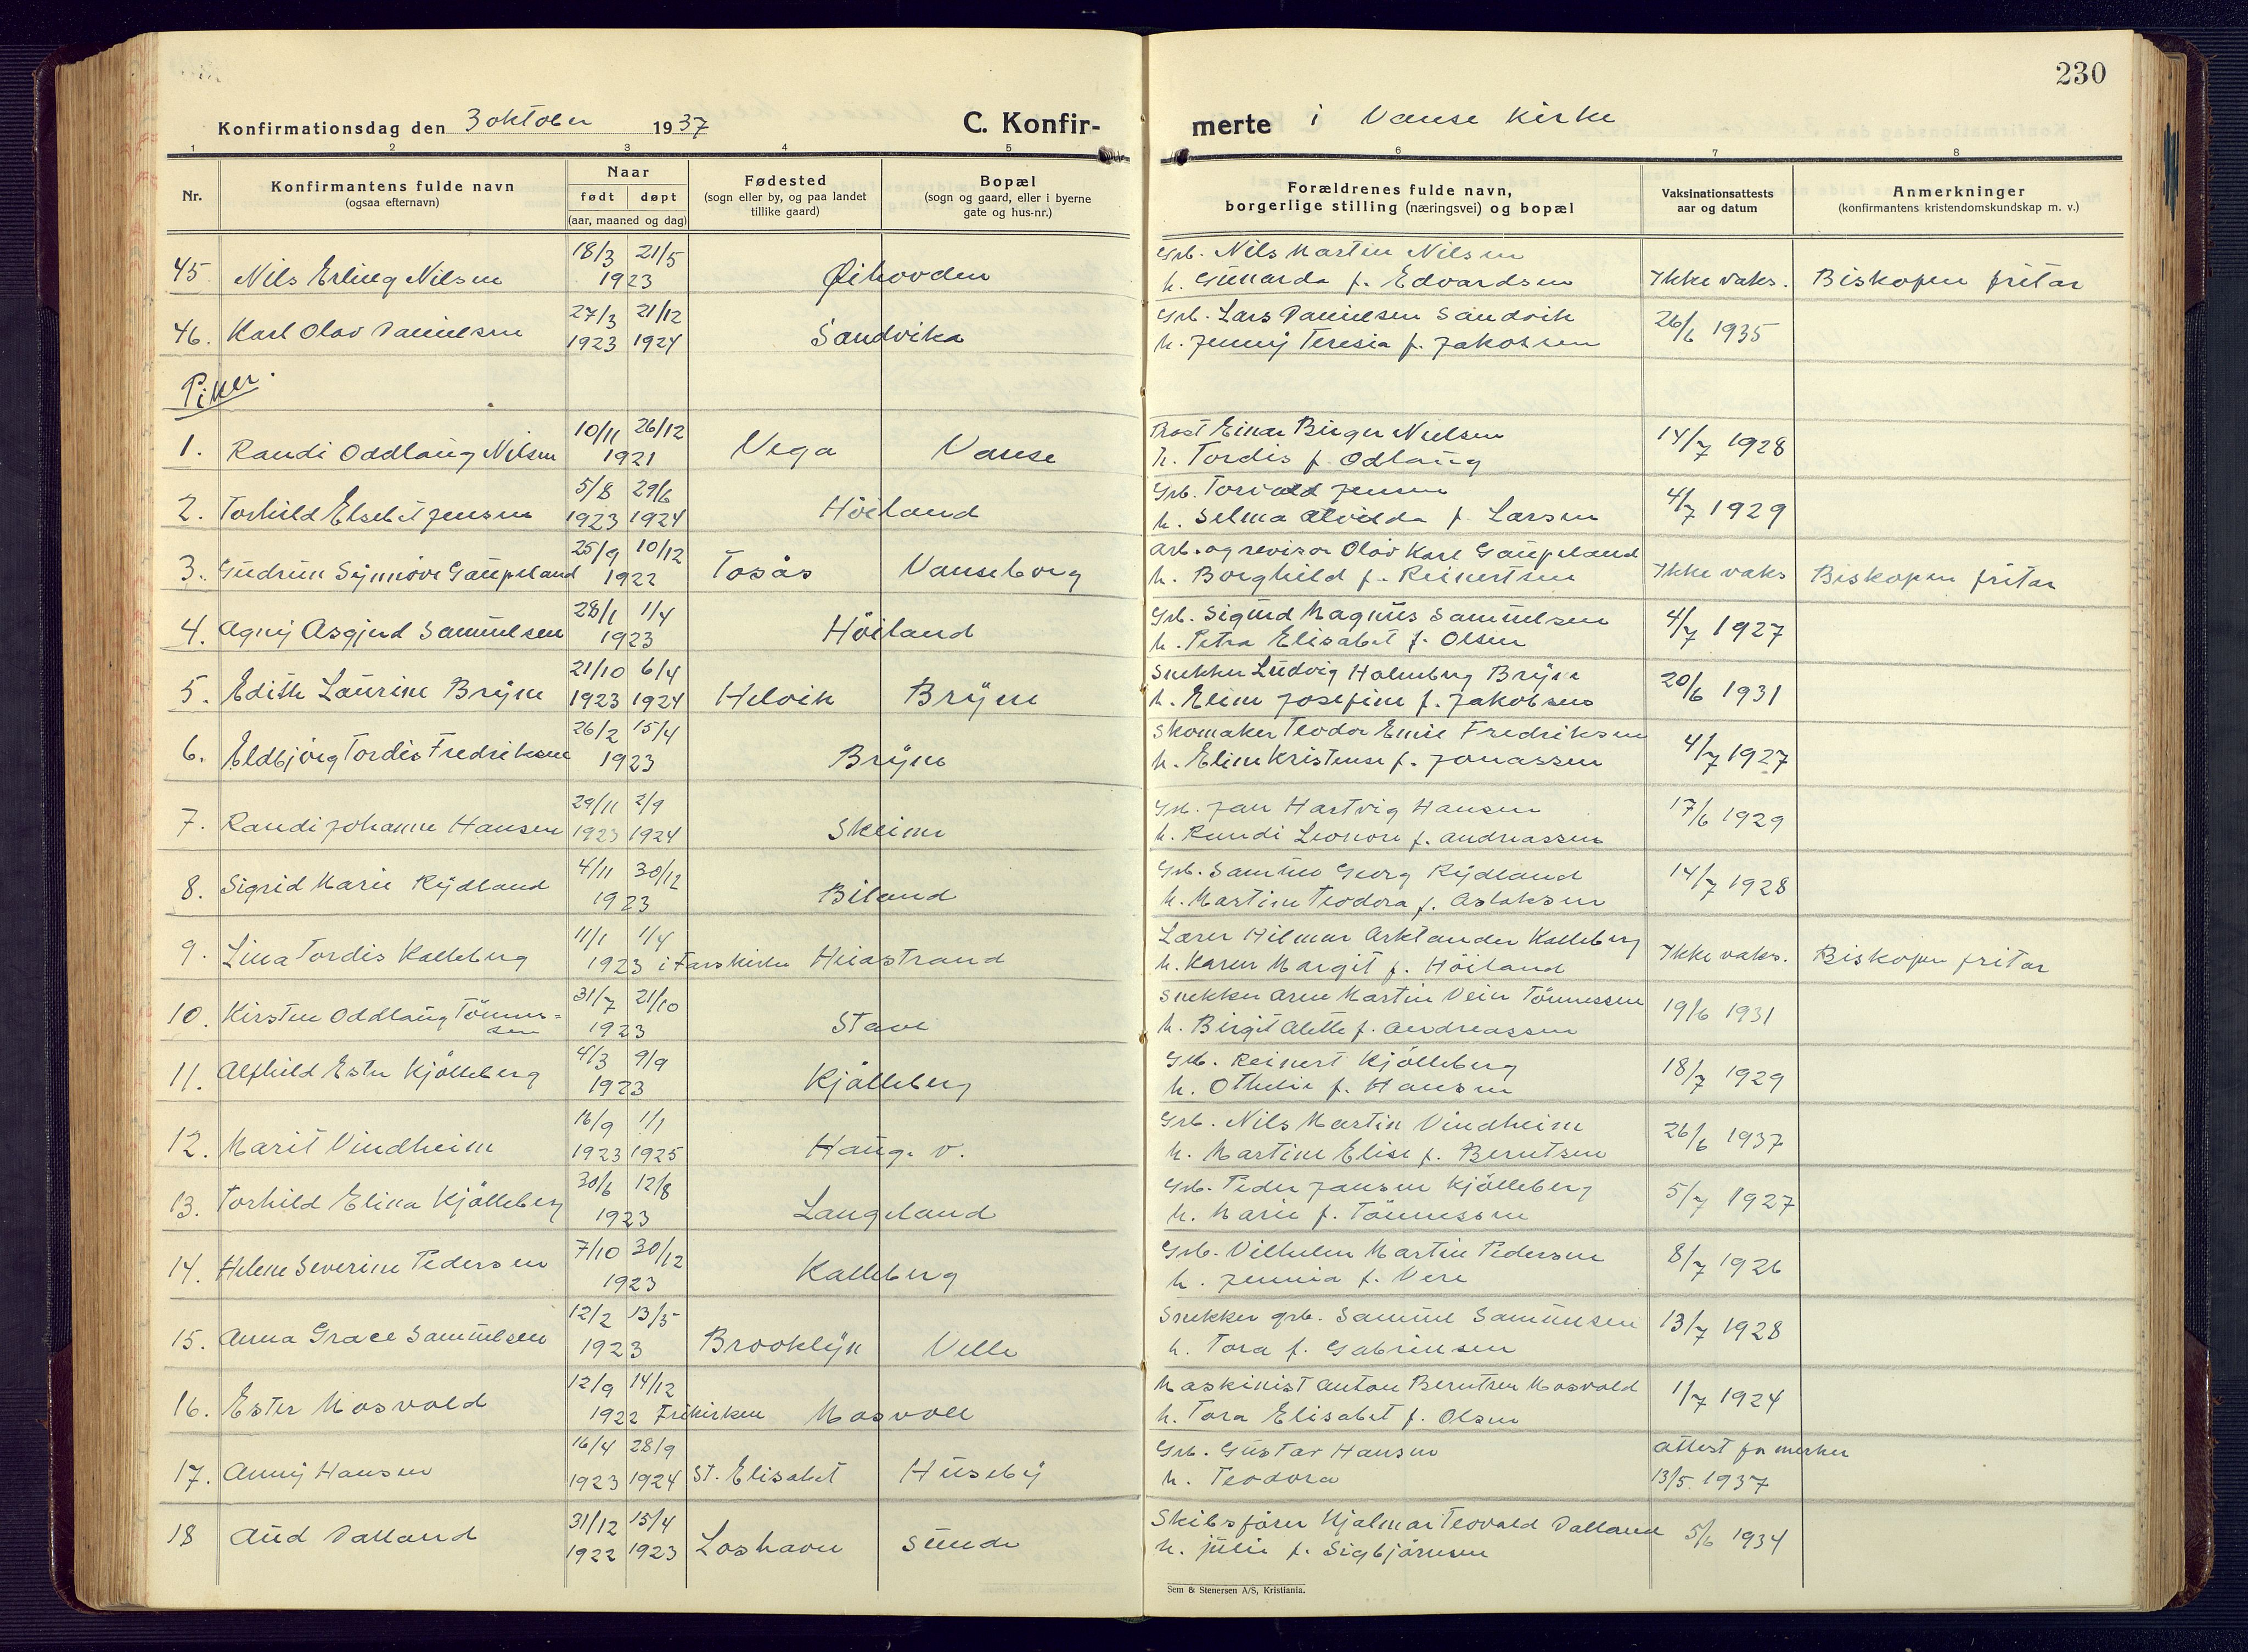 230
Konfirmationsdag den 3 oktober 1937
C. Konfir-
merte i Vanse Kirke
1 2 3 4 5 6 7 8
Nr.
Konfirmantens fulde navn
(ogsaa efternavn)
Naar
født døpt
(aar, maaned og dag)
Fødested
(sogn eller by, og paa landet
tillike gaard)
Bopæl
(sogn og gaard, eller i byerne
gate og hus-nr.)
Forældrenes fulde navn,
borgerlige stilling (næringsvei) og bopæl
Vaksinationsattests
aar og datum
Anmerkninger
(konfirmantens kristendomskundskap m. v.)
18/3 21/5 Grb. Nils Martin Nilsen
45 Nils Erling Nilsen 1923 Øihovden h. Gunarda f. Edvardsen Ikke vaks. Biskopen fritar
27/3 21/12 Grb. Lars Danielsen Sandvik 26/6 1935
46. Karl Olav Danielsen 1923 1924 Sandvika h. Jenny Teresia f. Jakobsen
Piker.
10/11 26/12 Prost Einar Birger Nielsen 14/7 1928
1. Randi Oddlaug Nilsen 1921 Vega Vanse h. Tordis f. Odlaug
5/8 29/6 Grb. Torvald Jensen 4/7 1929
2. Torhild Elsebet Jensen 1923 1924 Höiland h. Selma Alvilda f. Larsen
25/9 10/12 Arb. og revisor Olav Karl Gaupeland
3. Gudrun Synnöve Gaupeland 1922 Tosås Vanseborg h. Borghild f. Reinertsen Ikke vaks Biskopen fritar
28/1 1/4 Grb. Sigurd Magnus Samuelsen 4/7 1927
4. Agny Asgjerd Samuelsen 1923 Höiland h. Petra Elisabet f. Olsen
21/10 6/4 Snekker Ludvig Holmberg Bryne 20/6 1931
5. Edith Laurine Bryne 1923 1924 Helvik Bryne h. Eline Josefine f. Jakobsen
26/2 15/4 Skomaker Teodor Emil Fredriksen 4/7 1927
6. Eldbjörg Tordis Fredriksen 1923 Bryne h. Eline Kristense f. Jonassen
29/11 2/9 Grb. Jan Hartvig Hansen 17/6 1929
7. Randi Johanne Hansen 1923 1924 Skeime h. Randi Leonore f. Andreassen
4/11 30/12 Grb. Samuel Georg Rydland 14/7 1928
8. Sigrid Marie Rydland 1923 Biland h. Martine Teodora f. Aslaksen
11/1 1/4 Lærer Hilmar Arktander Kalleberg
9. Lina Tordis Kalleberg 1923 i Farskirke Heiastrand h. Karen Margit f. Höiland Ikke vaks. Biskopen fritar
31/7 21/10 Snekker Arne Martin Vein Tönnessen 19/6 1931
10. Kirsten Oddlaug Tönnes-
sen 1923 Stave h. Birgit Alette f. Andreassen
4/3 9/9 Grb. Reinert Kjölleberg 18/7 1929
11. Alfhild Ester Kjölleberg 1923 Kjölleberg h. Othelie f. Hansen
16/9 1/1 Grb. Nils Martin Vindheim 26/6 1937
12. Marit Vindheim 1923 1925 Haug. v. h. Martine Elise f. Berntsen
30/6 12/8 Grb. Peder Jansen Kjölleberg 5/7 1927
13. Torhild Elina Kjölleberg 1923 Langeland h. Marie f. Tönnessen
7/10 30/12 Grb. Vilhelm Martin Pedersen 8/7 1926
14. Helene Severine Pedersen 1923 Kalleberg h. Jennia f. Vere
12/2 13/5 Snekker grb. Samuel Samuelsen 13/7 1928
15. Anna Grace Samuelsen 1923 Brooklyn Velle h. Tora f. Gabrielsen
12/9 14/12 Maskinist Anton Berntsen Mosvold 1/7 1924
16. Ester Mosvold 1922 Frikirken Mosvoll h. Tora Elisabet f. Olsen
16/4 28/9 Grb. Gustav Hansen attest for merker
17. Anny Hansen 1923 1924 St. Elisabet Huseby h. Teodora 13/5. 1937
31/12 15/4 Skibsförer Hjalmar Teovald Dalland 5/6 1934
18 Aud Dalland 1922 1923 Loshavn Sunde h. Julie f. Sigbjörnsen
Sem & Stenersen A/S, Kristiania.